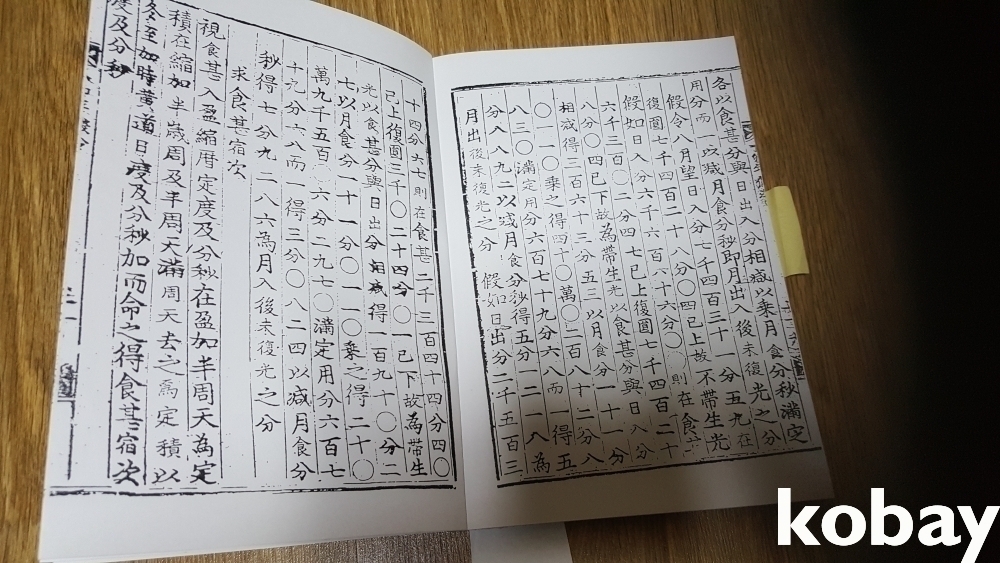 各以食甚分與日出入分相減以乘月食分秒滿定
用分而一以減月食分秒即月出入後未復光之分
假令八月望日入分七千四百三十一分五九在
復圓七千四百二十八分〇四已上故不帶生光
假如日入分六千六百六十六分〇〇則在食甚
六千三百〇二分四七已上復圓七千四百二十
八分〇四已下故為帶生光以食甚分與日入分
相減得三百六十三分五三以月食分一十一分
〇一一〇乘之得四十〇萬〇二百八十二分八
八三〇滿定用分六百七十九分六八而一得五
分八八九二以減月食分秒得五分一二一八為
月出後未復光之分 假如日出分二千五百三
十四分六七則在食甚二千三百四十四分四〇
已上復圓三千〇二十四分〇已下故為帶生
光以食甚分與日出分相減得一百九十〇分二
七以月食分一十一分〇一一〇乘之得二千〇
萬九千五百〇六分二九七〇滿定用分六百七
十九分六八而一得三分〇八二四以減月食分
秒得七分九二八六為月入後未復光之分
求食甚宿次
視食甚入盈縮曆定度及分秒在盈加半周天為定
積在縮加半歲周及半周天滿周天去之為定積以
冬至加時黃道日度及分秒加而命之得食甚宿次
度及分秒
kobay